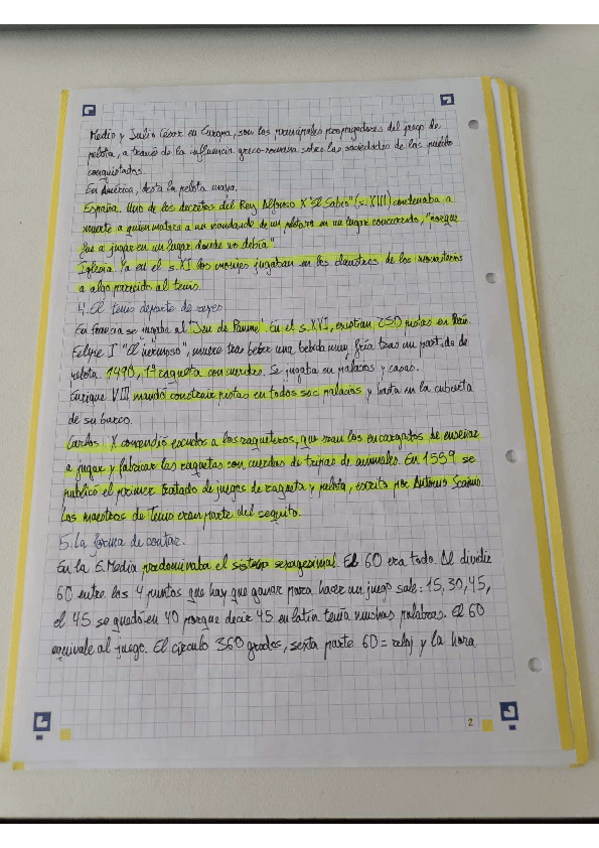 Medio y Julio César en Europa, son los principales propagadores del juego de
pelota, a través de la influencia greco-romana sobre las sociedades de los pueblos
conquistados.
En América, desta la pelota maya.
España. Uno de los decretos del Rey Alfonso X "El Sabio" (s. XIII) condenaba a
muerte a quien matara a un viandante de un pelotazo en un lugar concurrido, "porque
fue a jugar en un lugar donde no debía"
Iglesia. Ya en el s. XI los monjes jugaban en los claustros de los monasterios
a algo parecido al tenis.
4. El tenis deporte de reyes
En Francia se jugaba al "Jeu de Paume". En el s. XVI, existían 250 pistas en París.
Felipe I "El hermoso", muere tras beber una bebida muy fría tras un partido de
pelota. 1490, 1ª raqueta con cuerdas. Se jugaba en palacios y casas.
Enrique VIII mandó construir pistas en todos sus palacios y hasta en la cubierta
de su barco.
Carlos X concendió escudos a los raqueteros, que eran los encargados de enseñar
a jugar y fabricar las raquetas con cuerdas de tripas de animales. En 1559 se
publicó el primer tratado de juegos de raqueta y pelota, escrito por Antonio Scaino
Los maestros de tenis eran parte del sequito.
5. La forma de contar.
En la E. Media predominaba el sistema sexagesimal. El 60 era todo. Al dividir
60 entre los 4 puntos que hay que ganar para hacer un juego sale: 15, 30, 45,
el 45 se quedó en 40 porque decir 45 en latín tenía muchas palabras. El 60
equivale al juego. El círculo 360 grados, sexta parte 60 = reloj y la hora
2